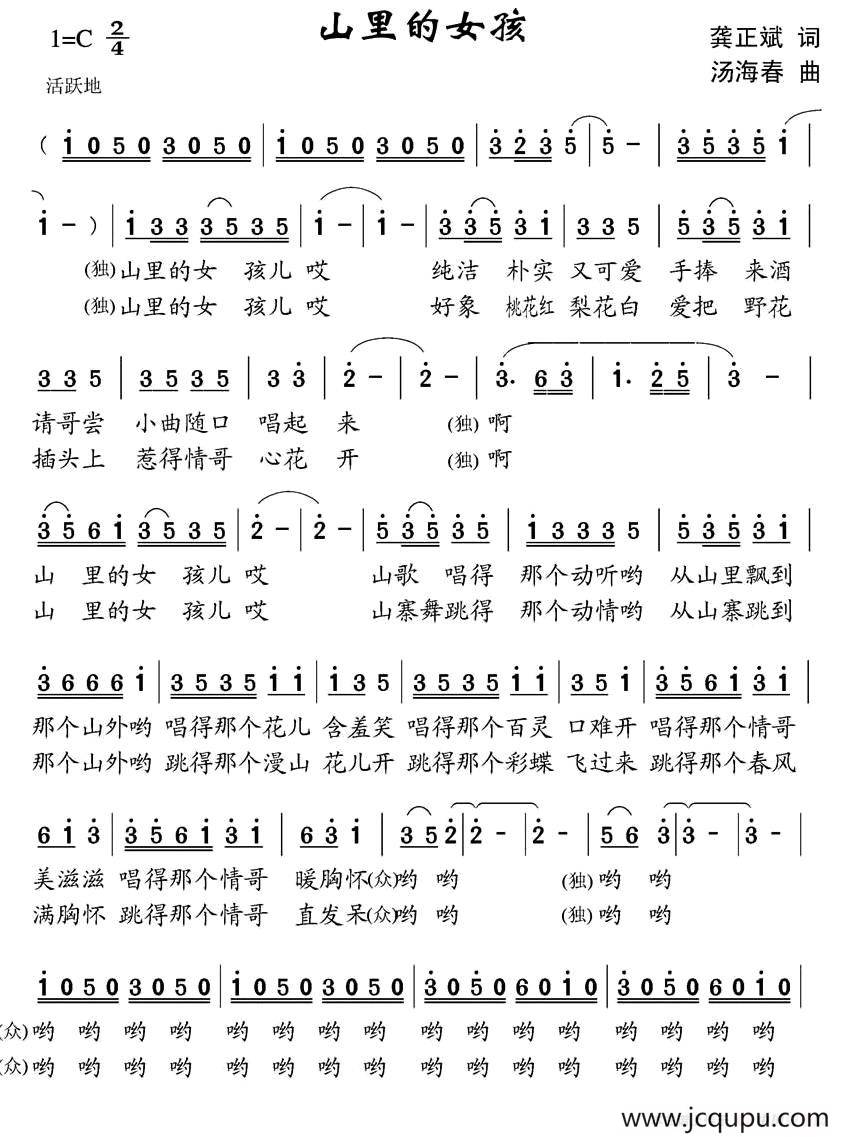 山里的女孩
1=C 2/4
龚正斌 词
汤海春 曲
活跃地
( i 0 5 0 3 0 5 0 | i 0 5 0 3 0 5 0 | 3 2 3 5 | 5 - | 3 5 3 5 i |
i - ) | i 3 3 3 5 3 5 | i - | i - | 3 3 5 3 i | 3 3 5 | 5 3 5 3 i |
(独) 山里的女 孩儿 哎 纯洁 朴实 又可爱 手捧 来酒
(独) 山里的女 孩儿 哎 好象 桃花红 梨花白 爱把 野花
3 3 5 | 3 5 3 5 | 3 3 | 2 - | 2 - | 3. 6 3 | i. 2 5 | 3 - |
请哥尝 小曲随口 唱起 来 (独) 啊
插头上 惹得情哥 心花 开 (独) 啊
3 5 6 i 3 5 3 5 | 2 - | 2 - | 5 3 5 3 5 | i 3 3 3 5 | 5 3 5 3 i |
山 里的女 孩儿 哎 山歌 唱得 那个动听哟 从山里飘到
山 里的女 孩儿 哎 山寨舞跳得 那个动情哟 从山寨跳到
3 6 6 6 i | 3 5 3 5 i i | i 3 5 | 3 5 3 5 i i | 3 5 i | 3 5 6 i 3 i |
那个山外哟 唱得那个花儿 含羞笑 唱得那个百灵 口难开 唱得那个情哥
那个山外哟 跳得那个漫山 花儿开 跳得那个彩蝶 飞过来 跳得那个春风
6 i 3 | 3 5 6 i 3 i | 6 3 i | 3 5 2 | 2 - | 2 - | 5 6 3 | 3 - | 3 - |
美滋滋 唱得那个情哥 暖胸怀(众)哟 哟 (独) 哟 哟
满胸怀 跳得那个情哥 直发呆(众)哟 哟 (独) 哟 哟
i 0 5 0 3 0 5 0 | i 0 5 0 3 0 5 0 | 3 0 5 0 6 0 i 0 | 3 0 5 0 6 0 i 0 |
(众) 哟 哟 哟 哟 哟 哟 哟 哟 哟 哟 哟 哟 哟 哟 哟 哟
(众) 哟 哟 哟 哟 哟 哟 哟 哟 哟 哟 哟 哟 哟 哟 哟 哟
www.jcqupu.com